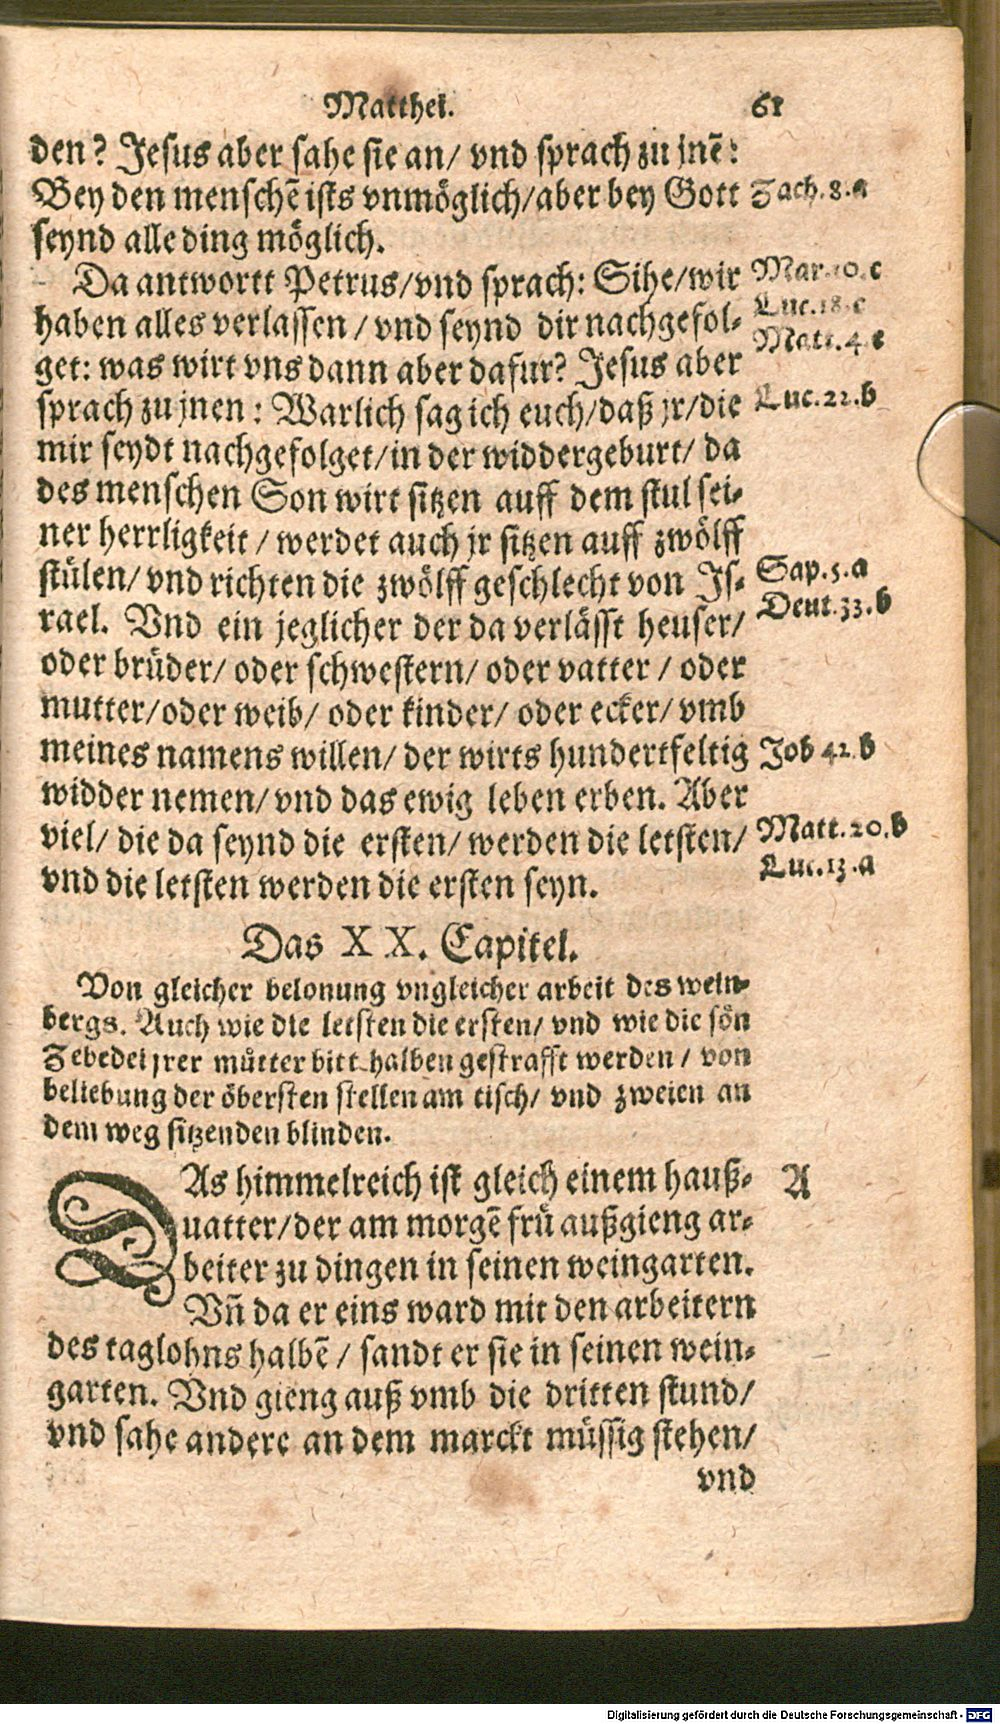 Matthei. 61
den? Jesus aber sahe sie an/ vnd sprach zu jnē:
Bey den menschē ists vnmöglich/aber bey Gott
Zach.8.a
seynd alle ding möglich.
Da antwortt Petrus/vnd sprach: Sihe/wir
Mar.10.c
haben alles verlassen / vnd seynd dir nachgefol-
Luc.18.c
get: was wirt vns dann aber dafur? Jesus aber
Matt.4.c
sprach zu jnen : Warlich sag ich euch/daß jr/die
Luc.22.b
mir seydt nachgefolget/in der widdergeburt/ da
des menschen Son wirt sitzen auff dem stul sei-
ner herrligkeit / werdet auch jr sitzen auff zwölff
stülen/ vnd richten die zwölff geschlecht von Is-
Sap.5.a
rael. Vnd ein jeglicher der da verlässt heuser/
Deut.33.b
oder brüder/ oder schwestern/ oder vatter / oder
mutter/oder weib/ oder kinder/ oder ecker/ vmb
meines namens willen/ der wirts hundertfeltig
Job 42.b
widder nemen/ vnd das ewig leben erben. Aber
viel/ die da seynd die ersten/ werden die letsten/
Matt.20.b
vnd die letsten werden die ersten seyn.
Luc.13.a
Das XX. Capitel.
Von gleicher belonung vngleicher arbeit des wein-
bergs. Auch wie die letsten die ersten/ vnd wie die sön
Zebedei jrer mütter bitt halben gestrafft werden / von
beliebung der öbersten stellen am tisch/ vnd zweien an
dem weg sitzenden blinden.
DAs himmelreich ist gleich einem hauß-
A
uatter/der am morgē frü außgieng ar-
beiter zu dingen in seinen weingarten.
Vñ da er eins ward mit den arbeitern
des taglohns halbē / sandt er sie in seinen wein-
garten. Vnd gieng auß vmb die dritten stund/
vnd sahe andere an dem marckt müssig stehen/
vnd
Digitalisierung gefördert durch die Deutsche Forschungsgemeinschaft - DFG